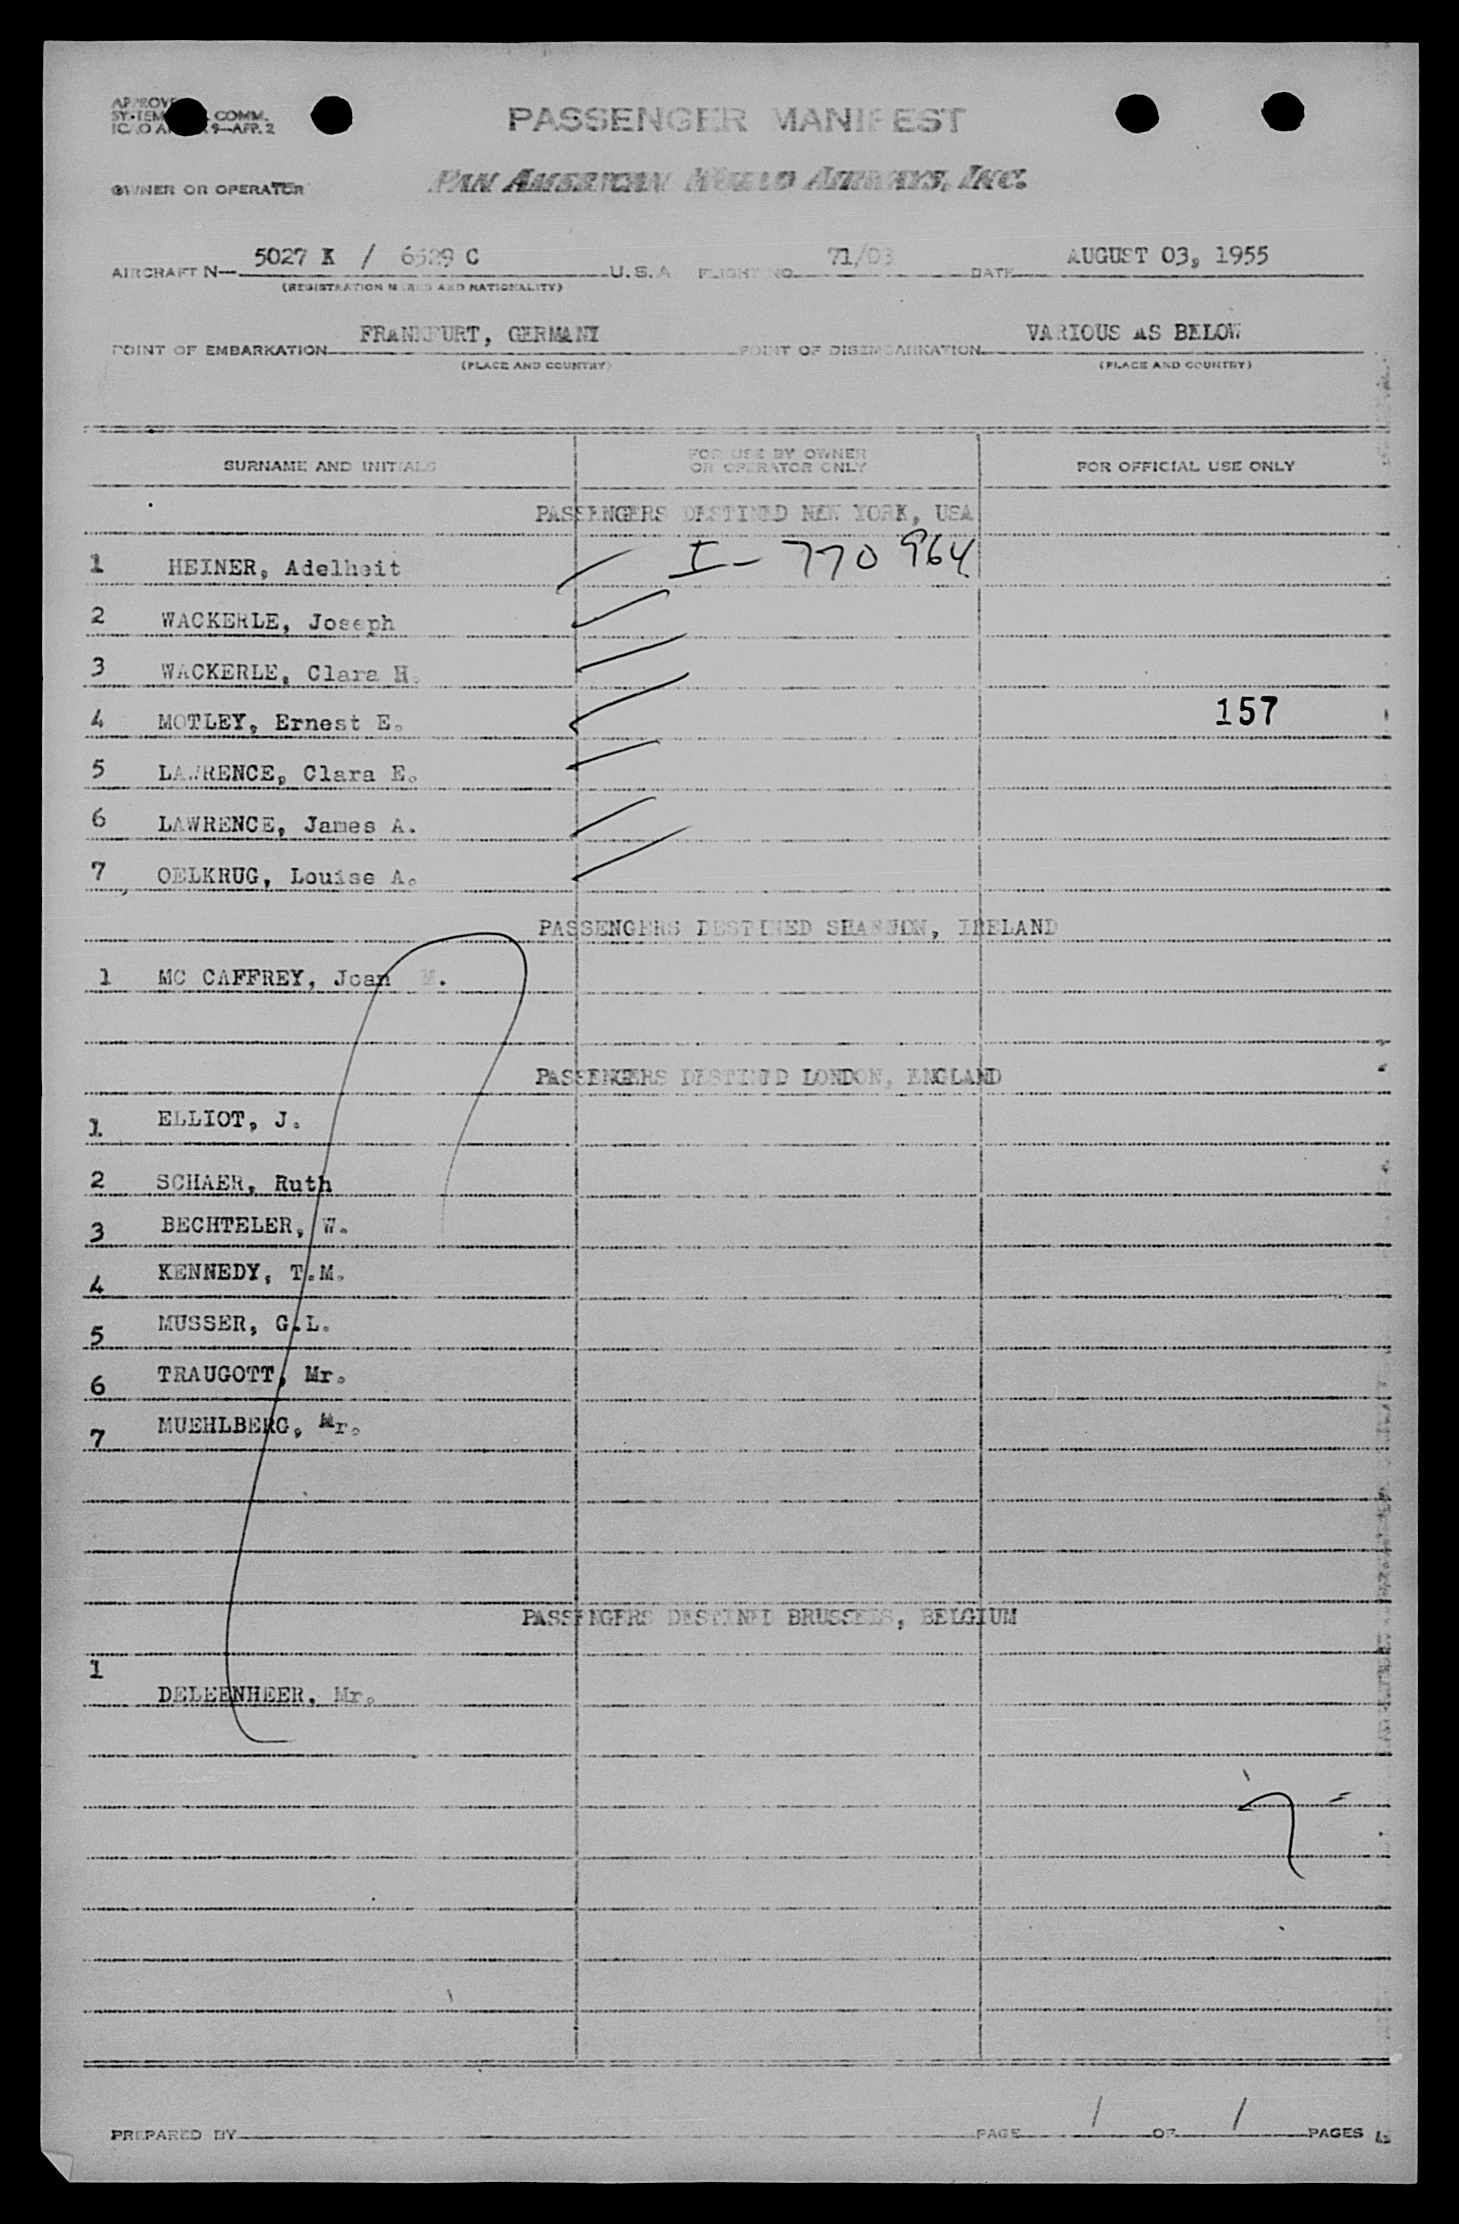 PASSENGER MANIFEST
COMM.
9—APP. 2
OWNER OR OPERATOR
PAN AMERICAN WORLD AIRWAYS, INC.
AIRCRAFT N— 5027 K / 6529 C U.S.A FLIGHT NO. 71/03 DATE AUGUST 03, 1955
(REGISTRATION MARKS AND NATIONALITY)
POINT OF EMBARKATION FRANKFURT, GERMANY POINT OF DISEMBARKATION VARIOUS AS BELOW
(PLACE AND COUNTRY) (PLACE AND COUNTRY)
SURNAME AND INITIALS FOR USE BY OWNER OR OPERATOR ONLY FOR OFFICIAL USE ONLY
PASSENGERS DESTINED NEW YORK, USA
1 HEINER, Adelheit I- 770 964
2 WACKERLE, Joseph
3 WACKERLE, Clara H.
4 MOTLEY, Ernest E. 157
5 LAWRENCE, Clara E.
6 LAWRENCE, James A.
7 OELKRUG, Louise A.
PASSENGERS DESTINED SHANNON, IRELAND
1 MC CAFFREY, Joan M.
PASSENGERS DESTINED LONDON, ENGLAND
1 ELLIOT, J.
2 SCHAER, Ruth
3 BECHTELER, W.
4 KENNEDY, T.M.
5 MUSSER, G.L.
6 TRAUGOTT, Mr.
7 MUEHLBERG, Mr.
PASSENGERS DESTINED BRUSSELS, BELGIUM
1
DELEENHEER, Mr.
PREPARED BY PAGE 1 OF 1 PAGES